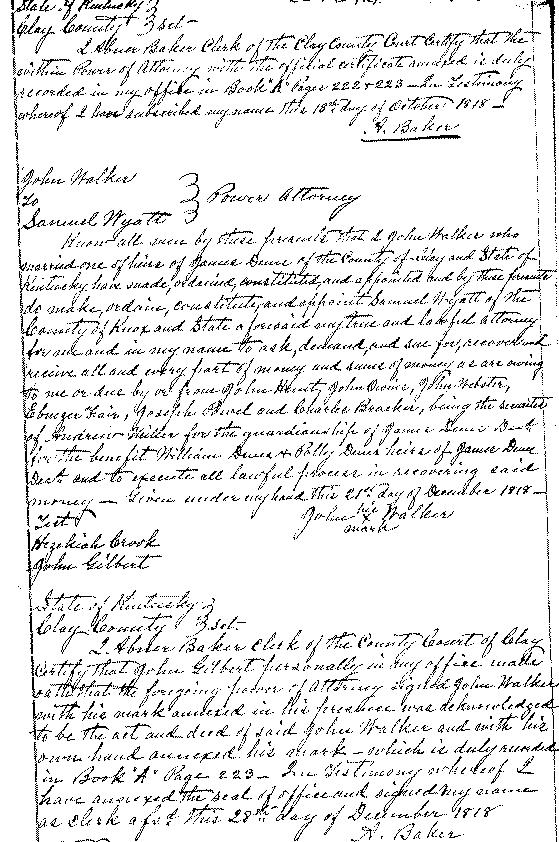 State of Kentucky }
Clay County } sct-
I Abner Baker Clerk of the Clay County Court Certify that the
within Power of Attorney with the official certificate annexed is duly
recorded in my office in Book "A" Pages 222 & 223 — In Testimony
whereof I have subscribed my name this 18th day of October 1818 —
A. Baker
John Walker
To } Power Attorney
Samuel Wyatt }
Know all men by these presents that I John Walker who
married one of heirs of James Deus of the County of Clay and State of
Kentucky have made, ordained, constituted, and appointed and by these presents
do make, ordain, constitute, and appoint Samuel Wyatt of the
County of Knox and State aforesaid my true and lawful attorney
for me and in my name to ask, demand, and sue for, recover and
receive all and every part of money and sums of money as are owing
to me or due by or from John Hunt, John John Webster,
Ebenezer Fair, Joseph and Charles Bracker, being the securities
of Andrew for the guardianship of James Deus Decd
for the benefit William Deus & Polly Deus heirs of James Deus
Decd and to execute all lawful process in recovering said
money — Given under my hand this 21st day of December 1818 —
Test John his X mark Walker
Hezekiah Crook
John Gilbert
State of Kentucky }
Clay County } sct-
I Abner Baker Clerk of the County Court of Clay
Certify that John Gilbert personally in my office made
oath that the foregoing power of Attorney signed John Walker
with his mark annexed in his presence was acknowledged
to be the act and deed of said John Walker and with his
own hand annexed his mark — which is duly recorded
in Book "A" Page 223 — In Testimony whereof I
have annexed the seal of office and signed my name
as Clerk afsd this 28th day of December 1818
A. Baker